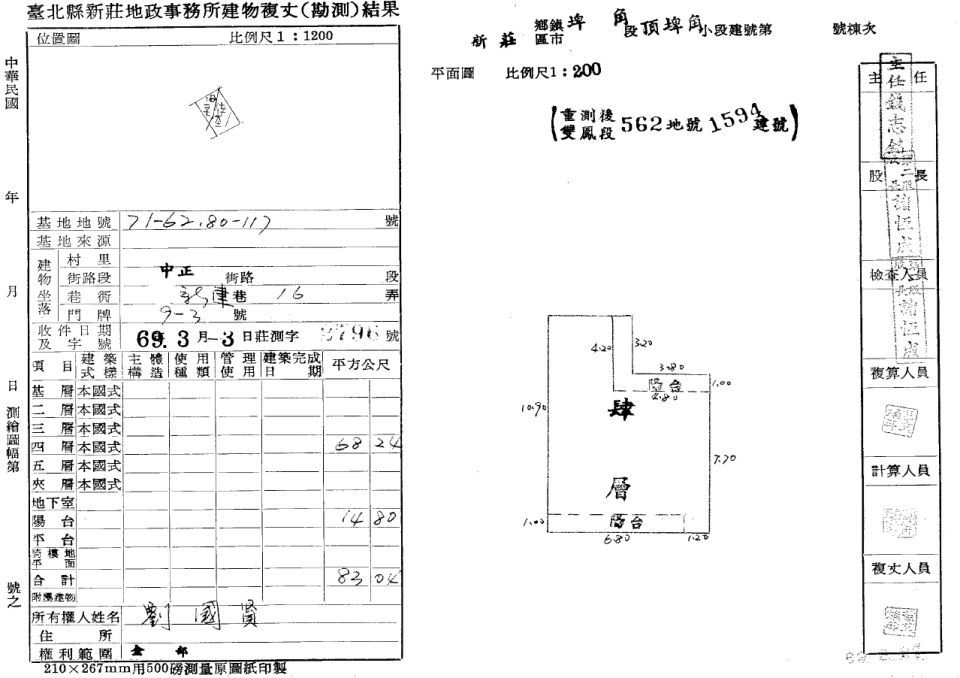 臺北縣新莊地政事務所建物複丈(勘測)結果
位置圖 比例尺1:1200
中華民國 年 月 日 測繪圖幅第 號之
基地地號 71-62.80-117 號
基地來源
建物坐落
村里
街路段 中正 街路 段
巷衖 巷 16 弄
門牌 9-3 號
收件日期及字號 69.3月-3日莊測字 3796 號
項目 建築式樣 主體構造 使用種類 管理使用 建築完成日期 平方公尺
基層 本國式
二層 本國式
三層 本國式
四層 本國式 68 24
五層 本國式
夾層 本國式
地下室
陽台 14 80
平台
騎樓地平面
合計 83 04
附屬建物
所有權人姓名 劉國賢
住所
權利範圍 全部
210×267mm用500磅測量原圖紙印製
新莊 鄉鎮區市 埤角 段 頂埤角 小段建號第 號棟次
平面圖 比例尺1:200
(重測後雙鳳段562地號1594建號)
4.20
3.20
3.80
陽台
1.00
4.80
10.90
肆
7.70
層
1.00
陽台
6.80
1.20
主任
股長
檢查人員
複算人員
計算人員
複丈人員